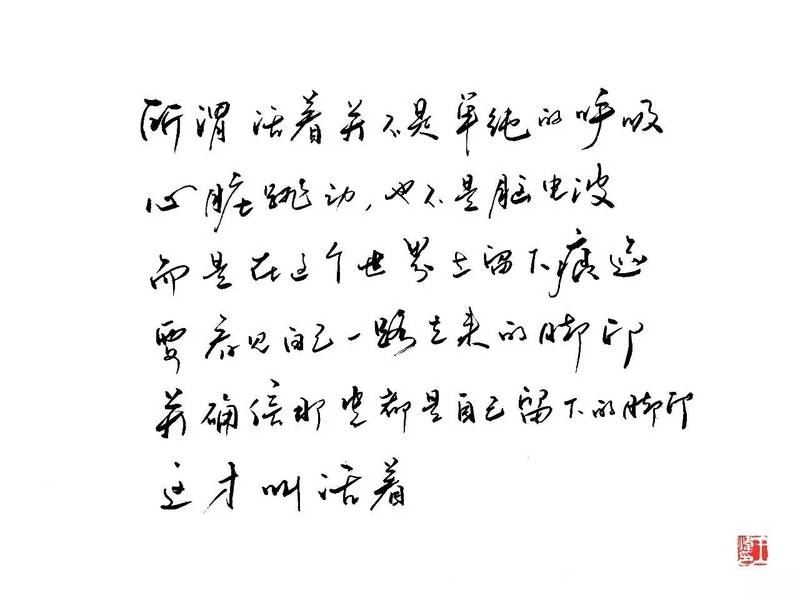 所谓活着并不是单纯的呼吸
心脏跳动,也不是脑电波
而是在这个世界上留下痕迹
要看见自己一路走来的脚印
并确信那些都是自己留下的脚印
这才叫活着